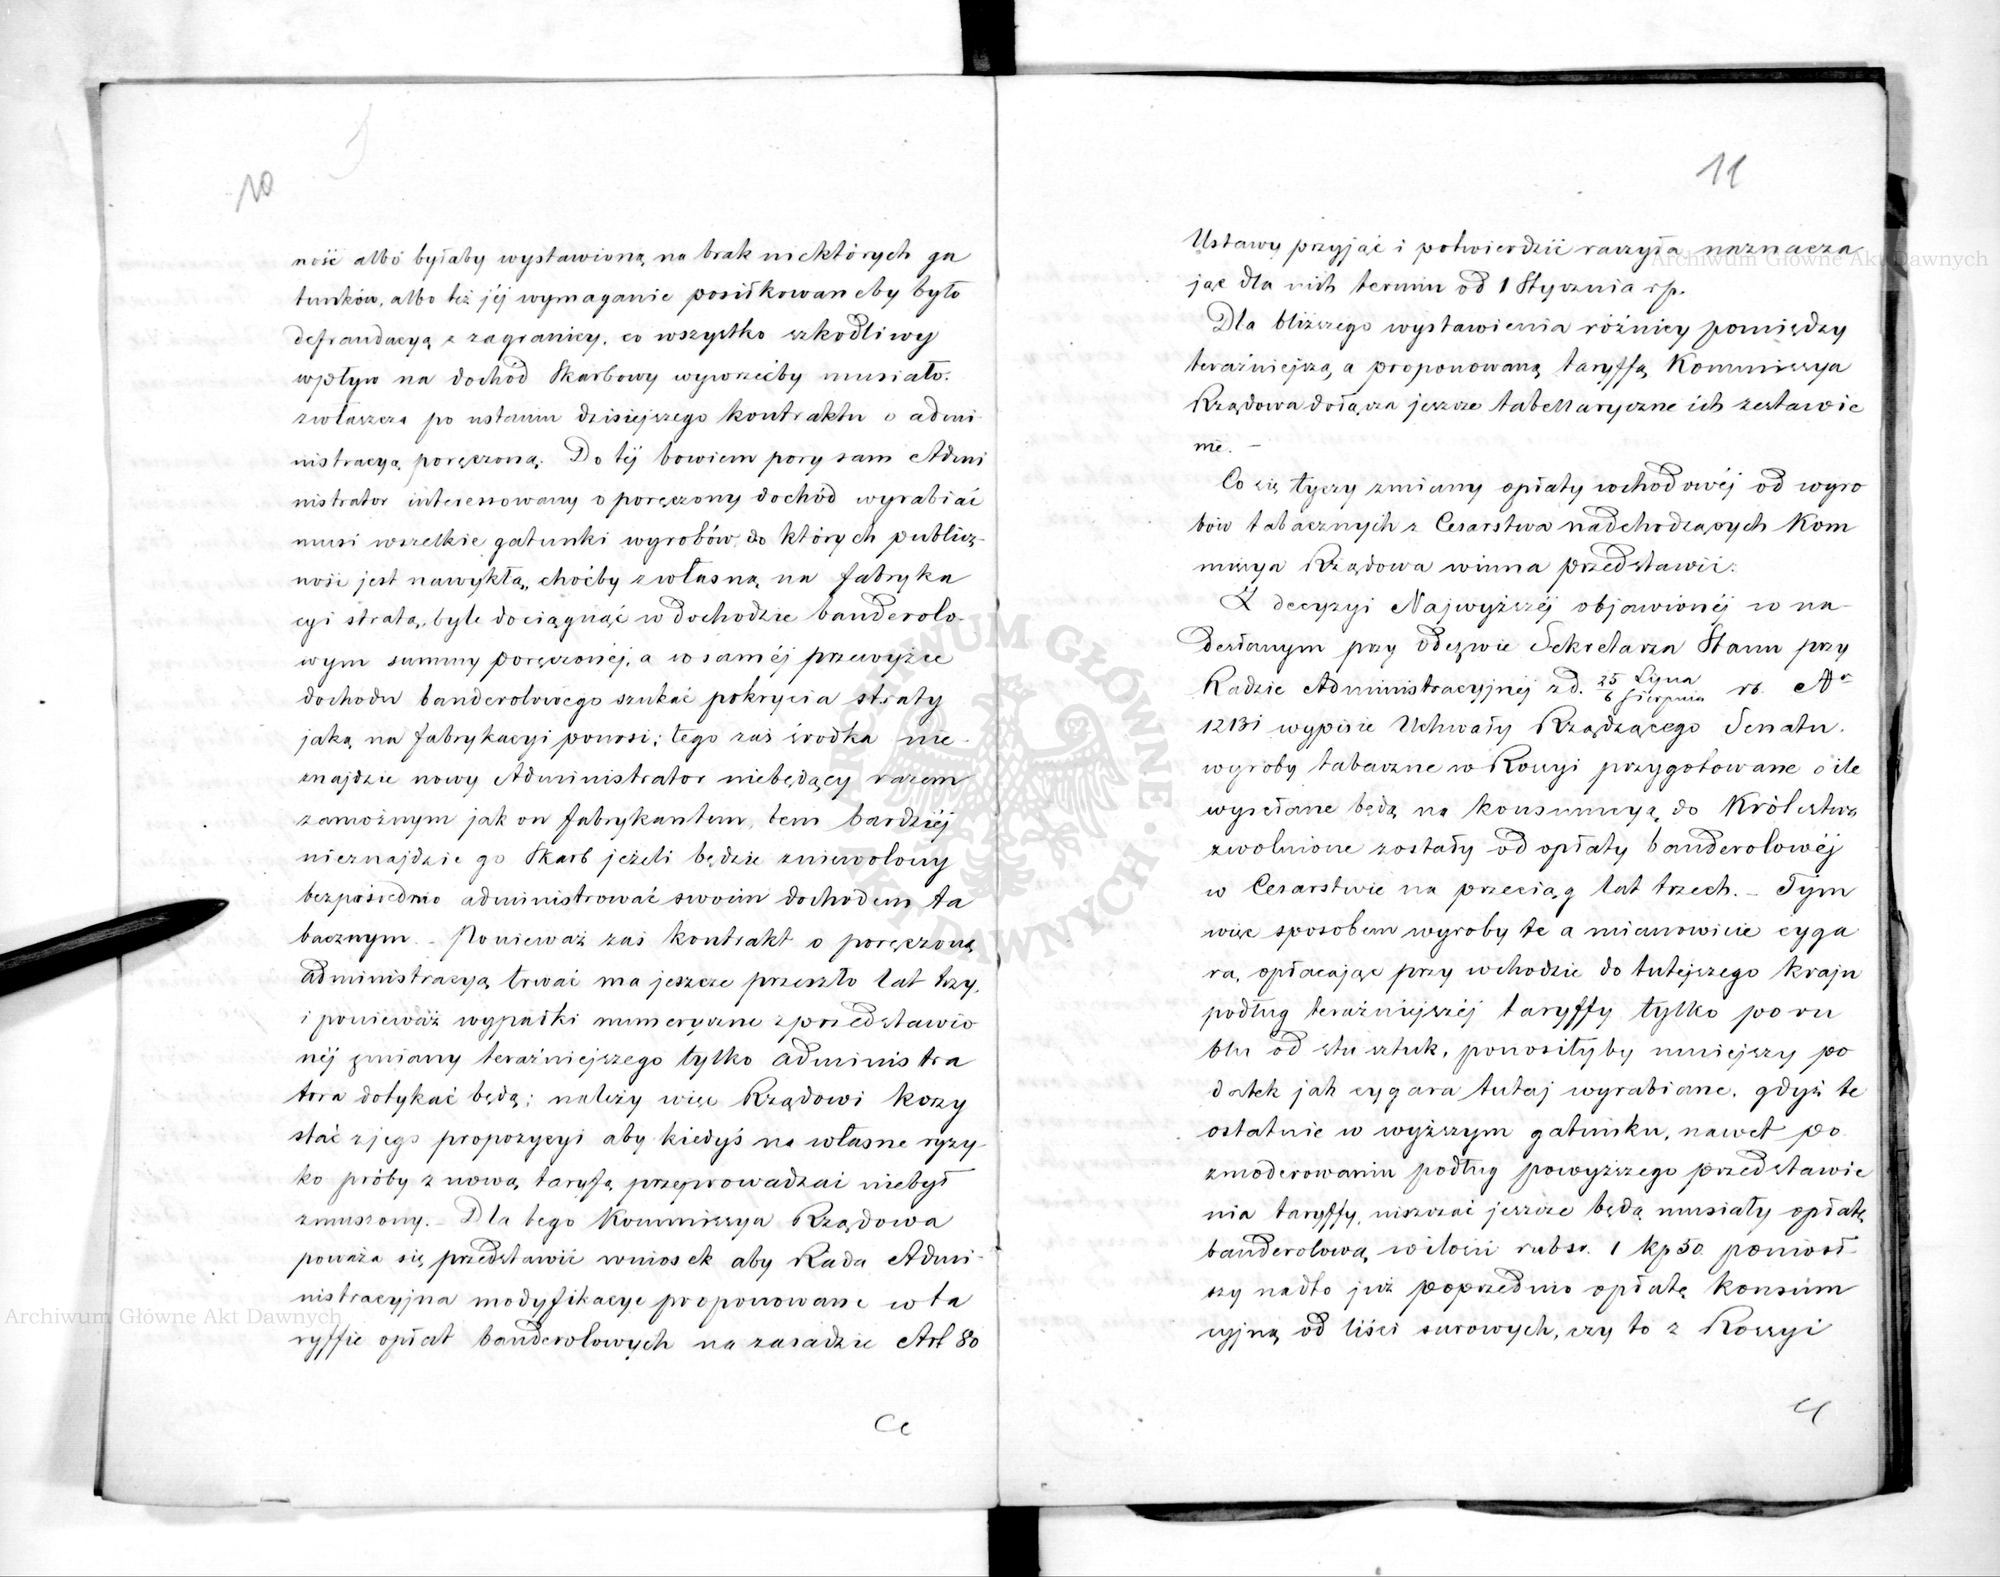 10
ność albo byłaby wystawioną na brak niektórych ga
tunków, albo też jéj wymaganie posiłkowaneby było
defraudacyą z zagranicy, co wszystko szkodliwy
wpływ na dochód Skarbowy wywrzećby musiało.
zwłaszcza po ustaniu dzisiejszego kontraktu o admi-
nistracyą poręczoną. Do téj bowiem pory sam Admi
nistrator interessowany o poręczony dochód wyrabiać
musi wszelkie gatunki wyrobów, do których publicz-
ność jest nawykłą, choćby z własną na fabryka
cyi stratą, byle dociągnąć w dochodzie banderolo-
wym summy poręczonéj, a w saméj przewyżce
dochodu banderolowego szukać pokrycia straty
jaką na fabrykacyi ponosi; tego zaś środka nie-
znajdzie nowy Administrator niebędący razem
zamożnym jak on fabrykantem, tem bardziéj
nieznajdzie go Skarb jeżeli będzie zniewolony
bezpośrednio administrować swoim dochodem ta
bacznym. – Ponieważ zaś kontrakt o poręczoną
administracyą trwać ma jeszcze przeszło lat trzy,
i ponieważ wypadki numeryczne z przedstawio
néj zmiany teraźniejszego tylko administra
tora dotykać będą; należy więc Rządowi korzy
stać z jego propozycyi aby kiedyś na własne ryzy-
ko próby z nową taryfą przeprowadzać niebył
zmuszony. – Dla tego Kommissya Rządowa
poważa się przedstawić wniosek aby Rada Admi-
nistracyjna modyfikacye proponowane w ta
ryffie opłat banderolowych na zasadzie Art 80
11
Ustawy przyjąć i potwierdzić raczyła naznacza
jąc dla nich termin od 1 Stycznia rp.
Dla bliższego wystawienia różnicy pomiędzy
teraźniejszą a proponowaną taryffą Kommissya
Rządowa dołącza jeszcze tabellaryczne ich zestawie
nie. –
Co się tyczy zmiany opłaty wchodowéj od wyro
bów tabacznych z Cesarstwa nadchodzących Kom
missya Rządowa winna przedstawić:
Z decyzyi Najwyższéj objawionéj w na-
desłanym przy odezwie Sekretarza Stanu przy
Radzie Administracyjnéj z d. 25 Lipca / 6 Sierpnia rb. Nr
12131 wypisie Uchwały Rządzącego Senatu.
wyroby tabaczne w Rossyi przygotowane o ile
wysełane będą na konsumcyą do Królestwa
zwolnione zostały od opłaty banderolowéj
w Cesarstwie na przeciąg lat trzech. – Tym
więc sposobem wyroby te a mianowicie cyga
ra, opłacając przy wchodzie do tutejszego kraju
podług teraźniejszéj taryffy tylko po ru
blu od stu sztuk, ponosiłyby mniejszy po
datek jak cygara tutaj wyrabiane. gdyż te
ostatnie w wyższym gatunku, nawet po
zmoderowaniu podług powyższego przedstawie
nia taryffy, niszczać jeszcze będą musiały opłatę
banderolową w ilości rubsr. 1 kp 50 poniósł-
szy nadto już poprzednio opłatę konsum
cyjną od liści surowych, czy to z Rossyi
Archiwum Główne Akt Dawnych
Archiwum Główne Akt Dawnych
ARCHIWUM GŁÓWNE AKT DAWNYCH